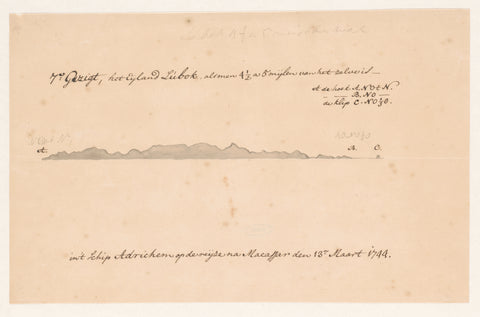 7e Gezigt, het Eyland Lubok, als men 4½ a 5 mylen van het zelve is—
A de hoek A. NO t N.
— — B. NO —
de klip C. NO½O.
A. B. C.
int Schip Adrichem op de reyse na Macasser den 13e Maart 1744.